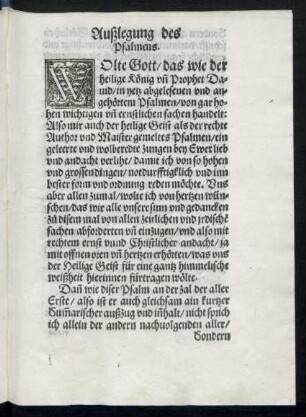 Außlegung des
Psalmens.
WOlte Gott / das wie der
heilige König vñ Prophet Da-
uid / in yetz abgelesenen vnd an-
gehörtem Psalmen / von gar ho-
hen wichtigen vñ ernstlichen sachen handelt:
Also mir auch der heilige Geist als der rechte
Author vnd Maister gemeltes Psalmen / ein
geleerte vnd wolberedte zungen bey Ewer lieb
vnd andacht verlihe / damit ich von so hohen
vnd grossen dingen / notdurfftigklich vnd im
besten form vnd ordnung reden möchte. Vns
aber allen zumal / wolte ich von hertzen wün-
schen / das wir alle vnsere sinn vnd gedancken
zu disem mal von allen zeitlichen vnd jrdische̅
sachen abforderten vñ einzugen / vnd also mit
rechtem ernst vnnd Christlicher andacht / ja
mit offnen oren vñ hertzen erhörten / was vns
der Heilige Geist für eine gantz himmelische
weißheit hierinnen fürtragen wölte.
Dañ wie diser Psalm an der zal der aller
Erste / also ist er auch gleichsam ain kurtzer
Sum̅arischer außzug vnd iñhalt / nicht sprich
ich allein der andern nachuolgenden aller /
Sondern